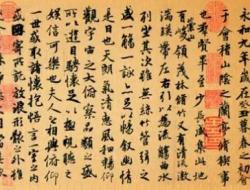 于會稽山陰之蘭亭脩稧事
也群賢畢至少長咸集此地
有峻領茂林脩竹又有清流激
湍映帶左右引以為流觴曲水
列坐其次雖無絲竹管弦之
盛一觴一詠亦足以暢敘幽情
是日也天朗氣清惠風和暢仰
觀宇宙之大俯察品類之盛
所以遊目騁懷足以極視聽之
娛信可樂也夫人之相與俯仰
一世或取諸懷抱悟言一室之內
或因寄所託放浪形骸之外雖